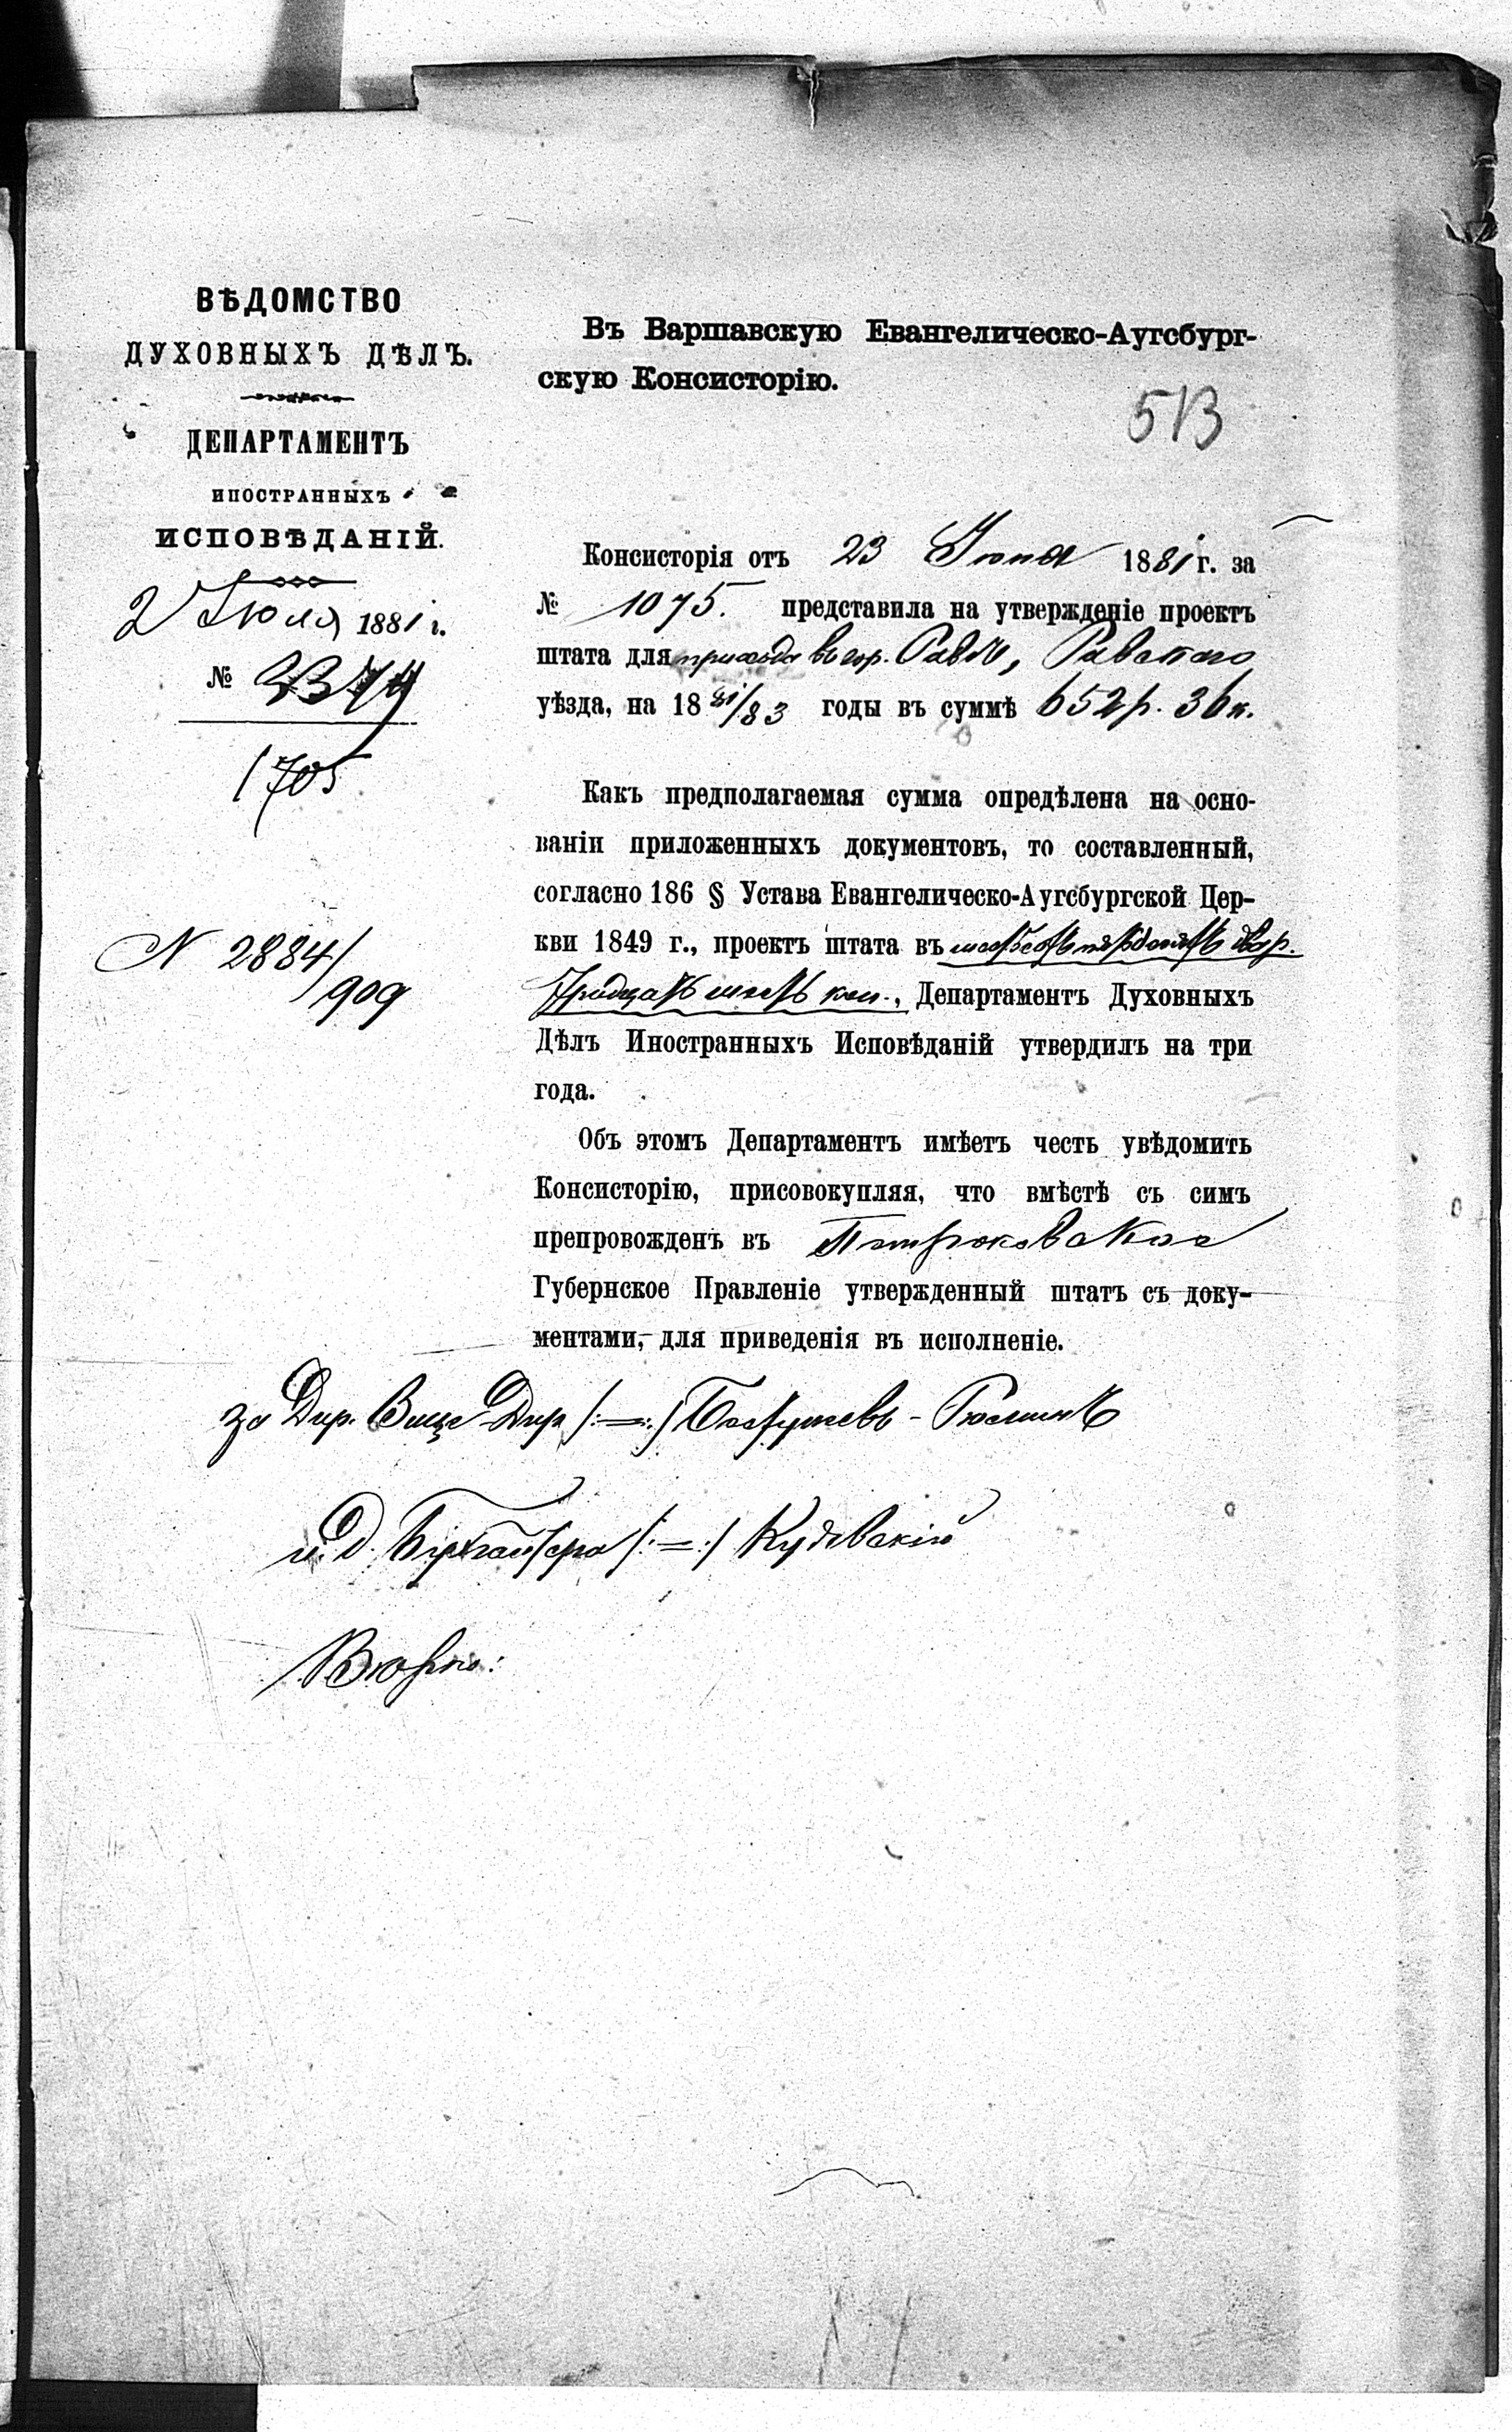 ВѢДОМСТВО
ДУХОВНЫХЪ ДѢЛЪ.
ДЕПАРТАМЕНТЪ
ИНОСТРАННЫХЪ
ИСПОВѢДАНІЙ.
2 Іюля 1881 г.
№ 2374
1705
N 2884/
909
Въ Варшавскую Евангелическо-Аугсбург-
скую Консисторію.
513
Консисторія отъ 23 Іюня 1881 г. за
№ 1075. представила на утвержденіе проектъ
штата для прихода въ гор. Равѣ, Равскаго
уѣзда, на 1881/83 годы въ суммѣ 652 р. 36 к.
Какъ предполагаемая сумма опредѣлена на осно-
ваніи приложенныхъ документовъ, то составленный,
согласно 186 § Устава Евангелическо-Аугсбургской Цер-
кви 1849 г., проектъ штата въ шестьсотъ пятьдесятъ два р.
тридцать шесть коп., Департаментъ Духовныхъ
Дѣлъ Иностранныхъ Исповѣданій утвердилъ на три
года.
Объ этомъ Департаментъ имѣетъ честь увѣдомить
Консисторію, присовокупляя, что вмѣстѣ съ симъ
препровожденъ въ Петроковское
Губернское Правленіе утвержденный штатъ съ доку-
ментами, для приведенія въ исполненіе.
за Дир. Вице Дир /:=:/ Бестужевъ-Рюминъ
и. д. /:=:/
Вѣрно: